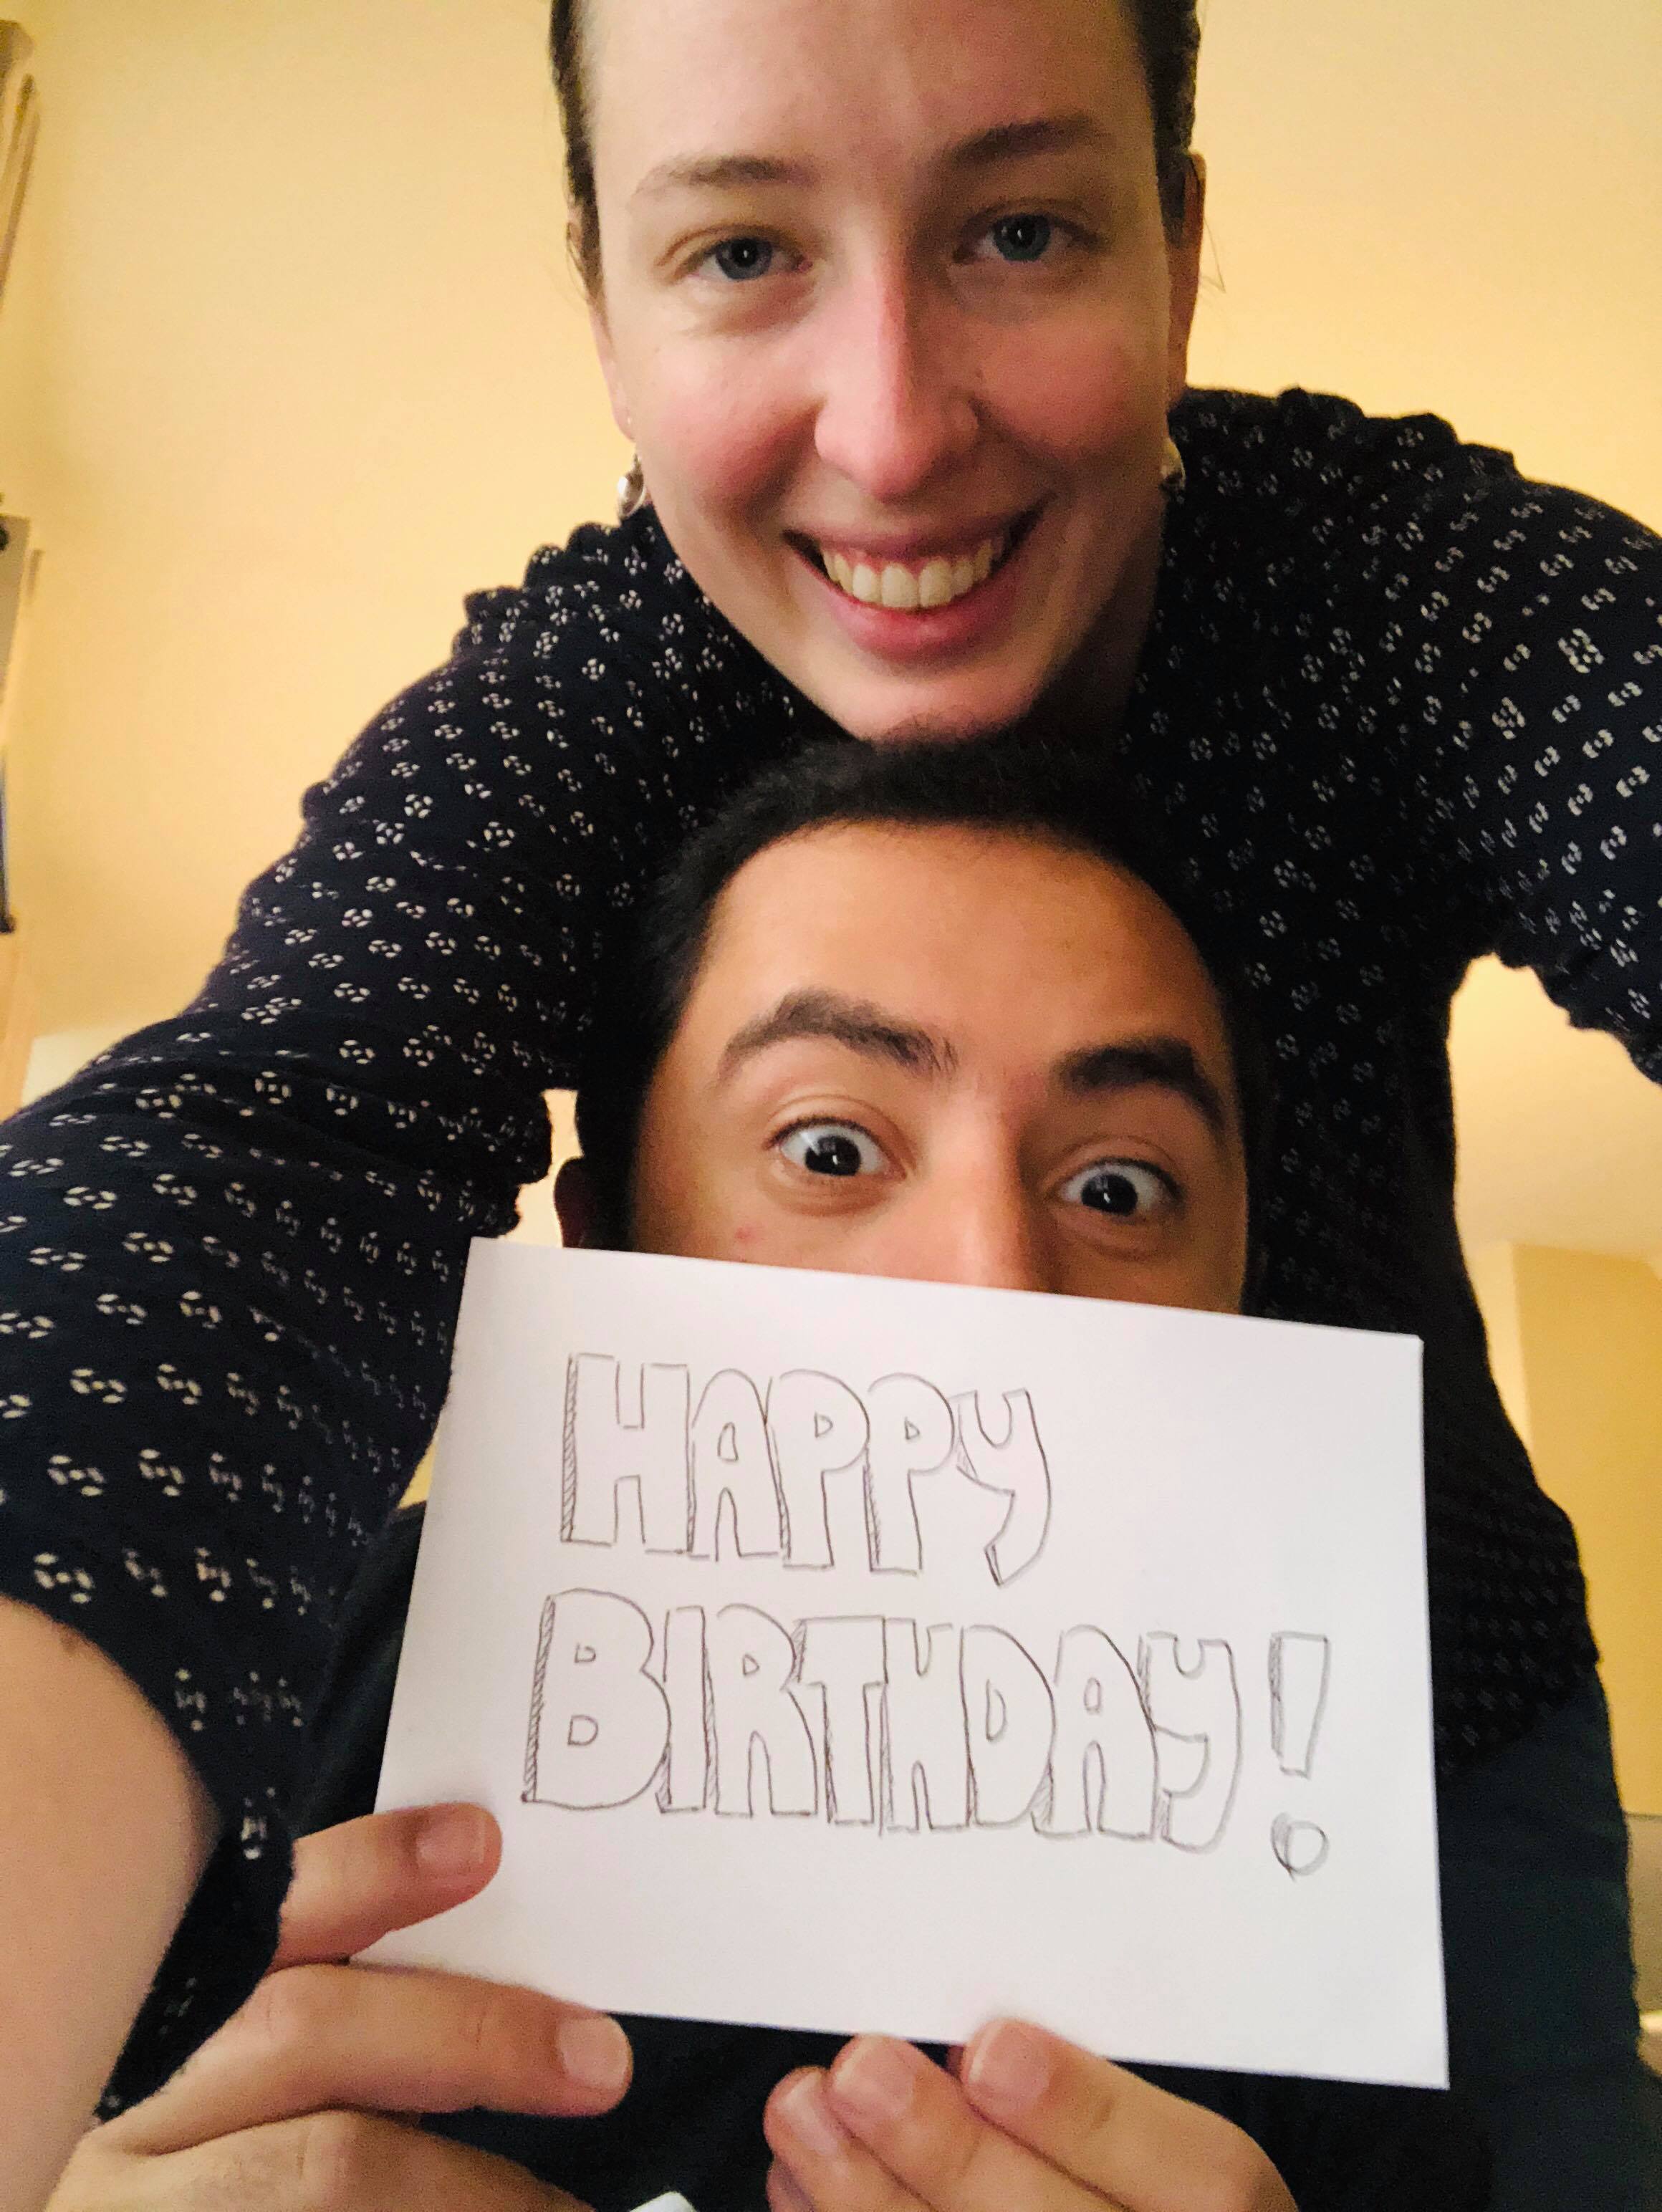 HAPPY
BIRTHDAY!